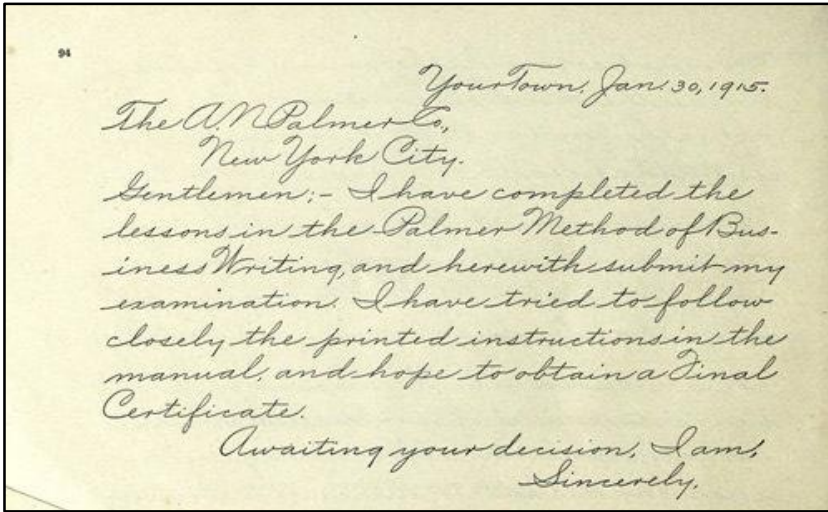 94
Your Town, Jan. 30, 1915.
The A. N. Palmer Co.,
New York City.
Gentlemen:- I have completed the
lessons in the Palmer Method of Bus-
iness Writing, and herewith submit my
examination. I have tried to follow
closely the printed instructions in the
manual, and hope to obtain a Final
Certificate.
Awaiting your decision, I am,
Sincerely,